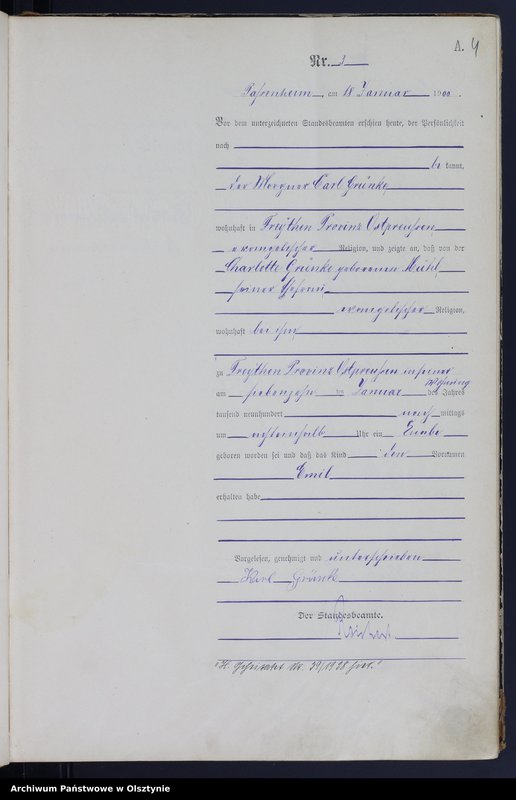 A. 4
Nr. 3
Passenheim, am 18 Januar 1900.
Vor dem unterzeichneten Standesbeamten erschien heute, der Persönlichkeit
nach
be kannt,
der Carl Grünke
wohnhaft in Freythen Provinz Ostpreußen
evangelischer Religion, und zeigte an, daß von der
Charlotte Grünke geborenen Mühl
seiner Ehefrau
evangelischer Religion,
wohnhaft bei ihm
zu Freythen Provinz Ostpreußen in seiner
Wohnung
am siebenzehn ten Januar des Jahres
tausend neunhundert nach mittags
um achteinhalb Uhr ein Knabe
geboren worden sei und daß das Kind den Vornamen
Emil
erhalten habe
Vorgelesen, genehmigt und unterschrieben
Karl Grünke
Der Standesbeamte.
Nr. 39/1928
Archiwum Państwowe w Olsztynie